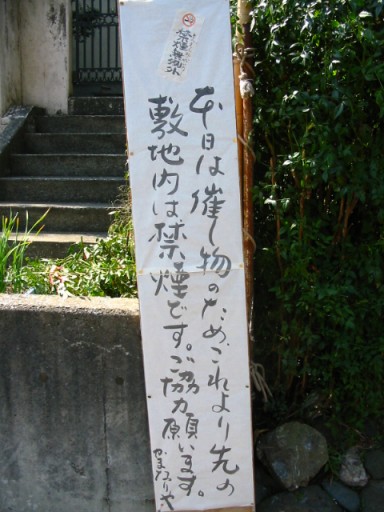 本日は催し物のため、これより先の
敷地内は禁煙です。ご協力願います。
かまなりや